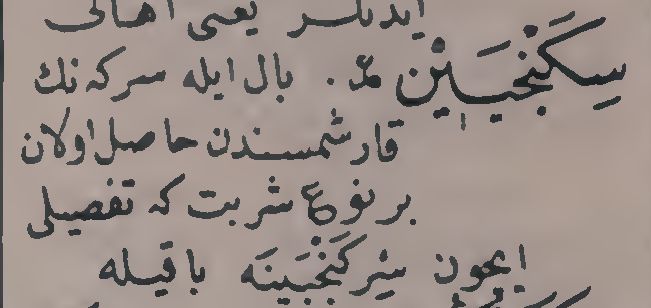 ایدیلر یعنی اهالی
سِكَنْجَبِیْن مع. بال ایله سركه نك
قارشمسندن حاصل اولان
بر نوع شربت كه تفصیلی
ایچون سِرْكَنْجَبِینَه باقیله